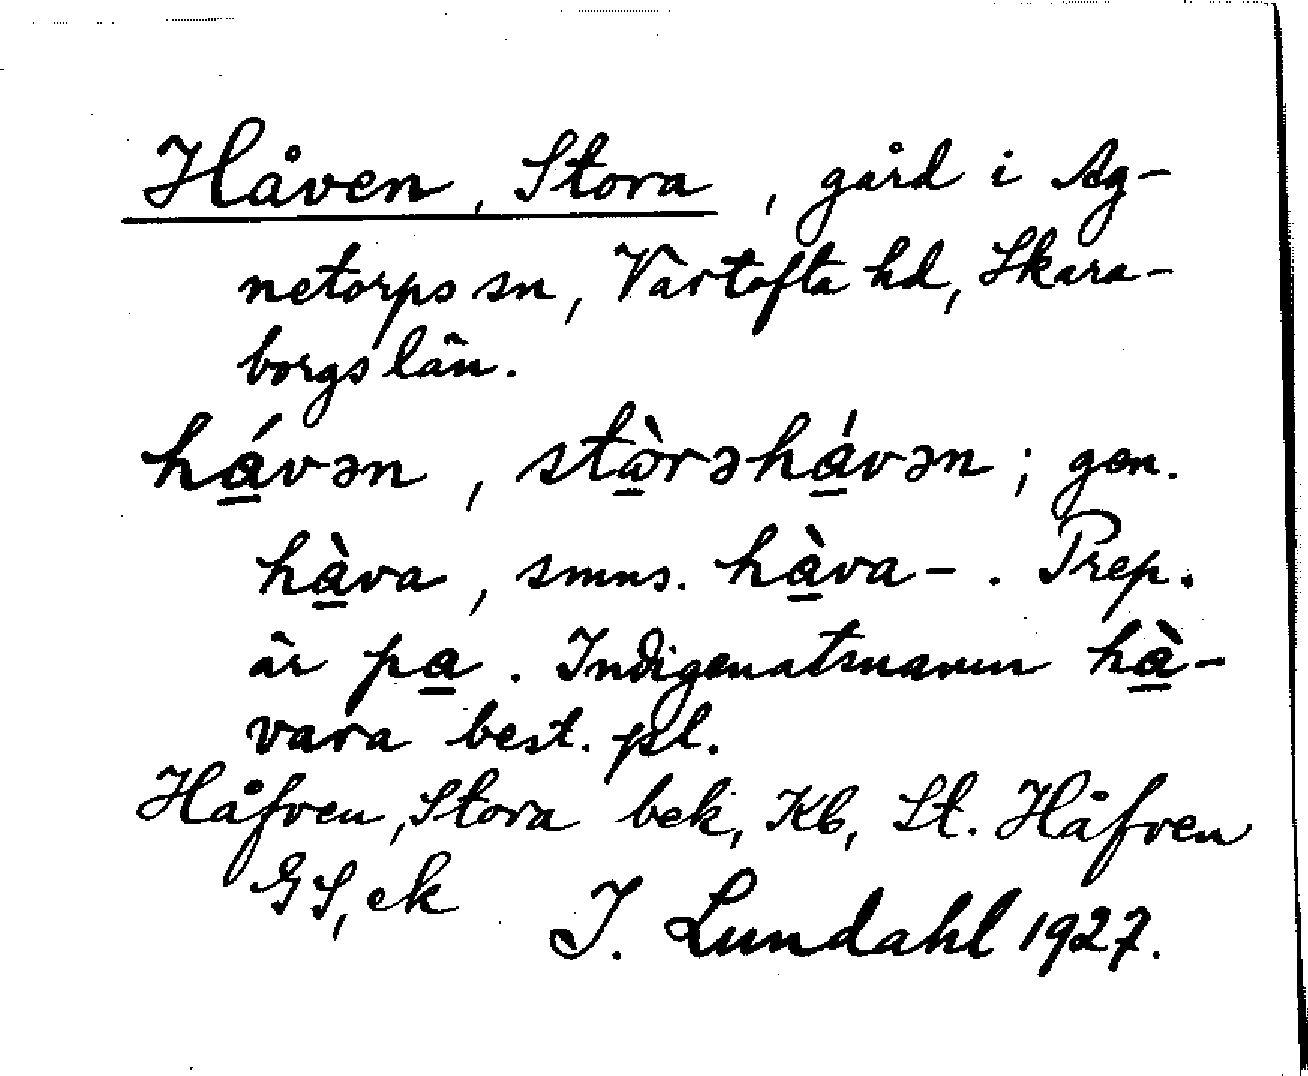 Håven, Stora, gård i Ag-
netorps sn, Vartofta hd, Skara-
borgs län.
há̱vən, stò̱rəhá̱vən; gen.
hà̱va, smns. hà̱va-. Prep.
är pa̱. Indigenatsnamn hà̱-
vara best. pl.
Håfven, Stora bek, Kb, St. Håfven
GS, ek
I. Lundahl 1927.